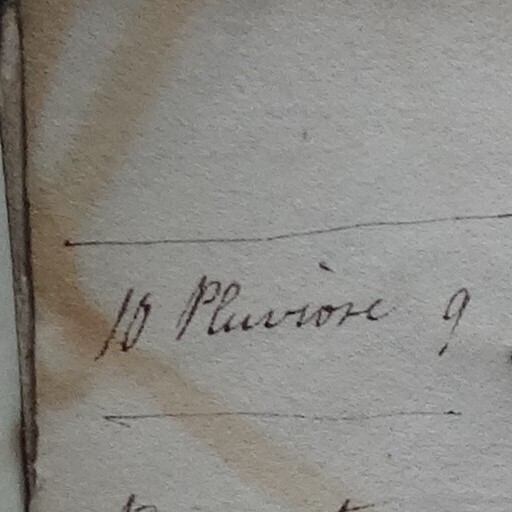 18 Pluviôse 9